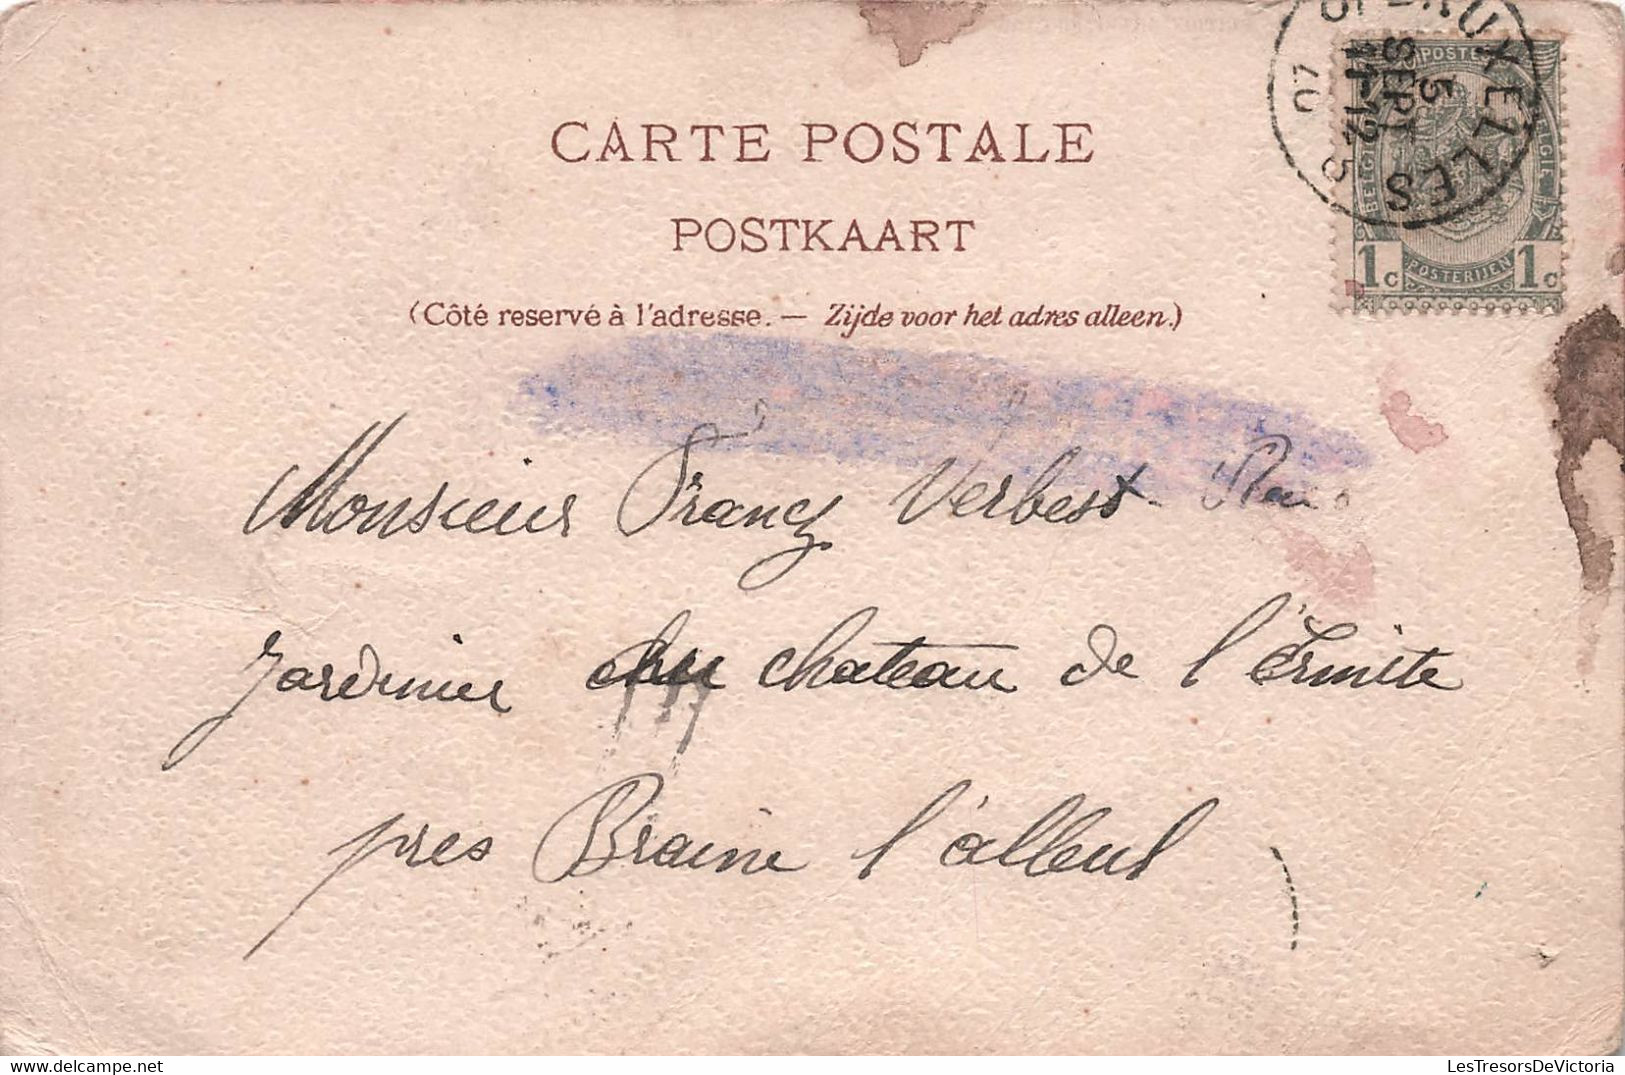 CARTE POSTALE
POSTKAART
(Côté reservé à l'adresse. — Zijde voor het adres alleen.)
BRUXELLES
5
SEPT
11-12
07
POSTE
BELGIE
1c POSTERIJEN 1c
Monsieur Francs Verbest
Jardinier du chateau de l'Ermite
pres Braine l'alleul
LesTresorsDeVictoria